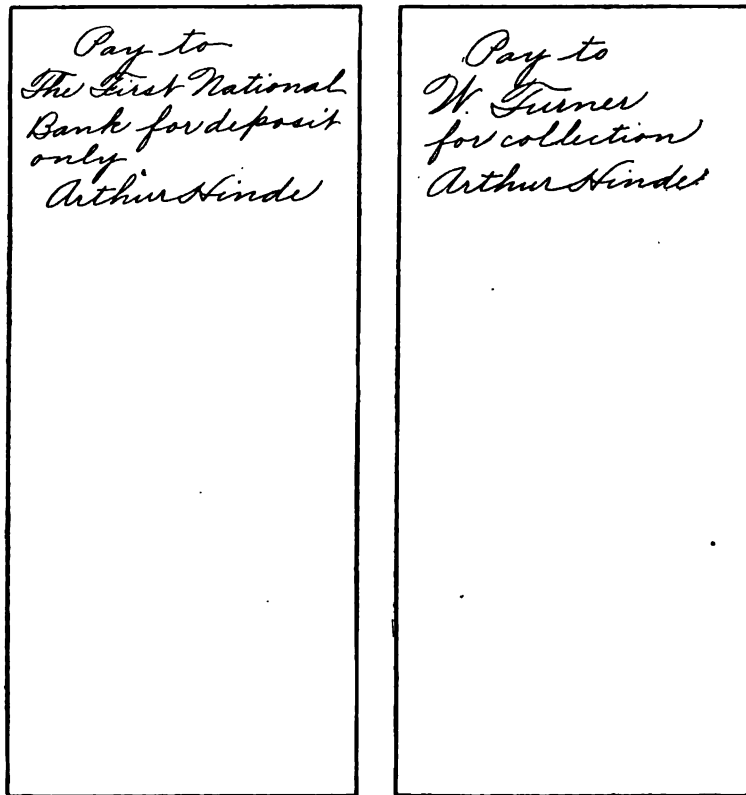 Pay to
The First National
Bank for deposit
only
Arthur Hinde
Pay to
W. Turner
for collection
Arthur Hinde